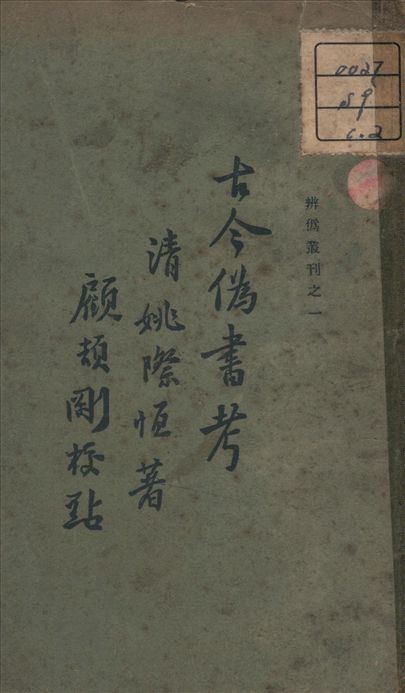 辨僞叢刊之一
古今僞書考
清姚際恆著
顧頡剛校點
0027
S9
c.2